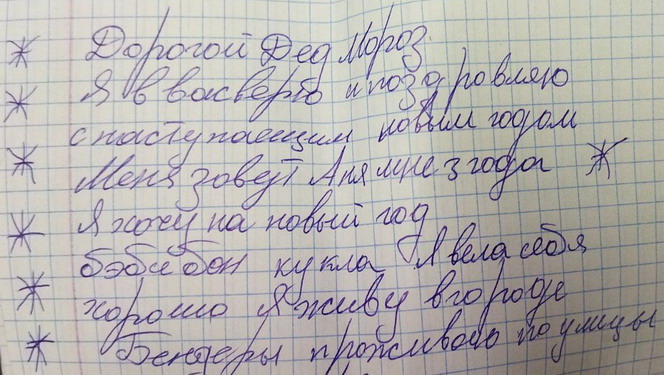 Дорогой Дед Мороз
Я в васверто и поздровляю
с наступаещим новым годом
Меня зовут Аня мне 3 года
Я хочу на новый год
бэби бон кукла Я вела себя
хорошо Я живу в городе
Бендеры проживаю по улицы